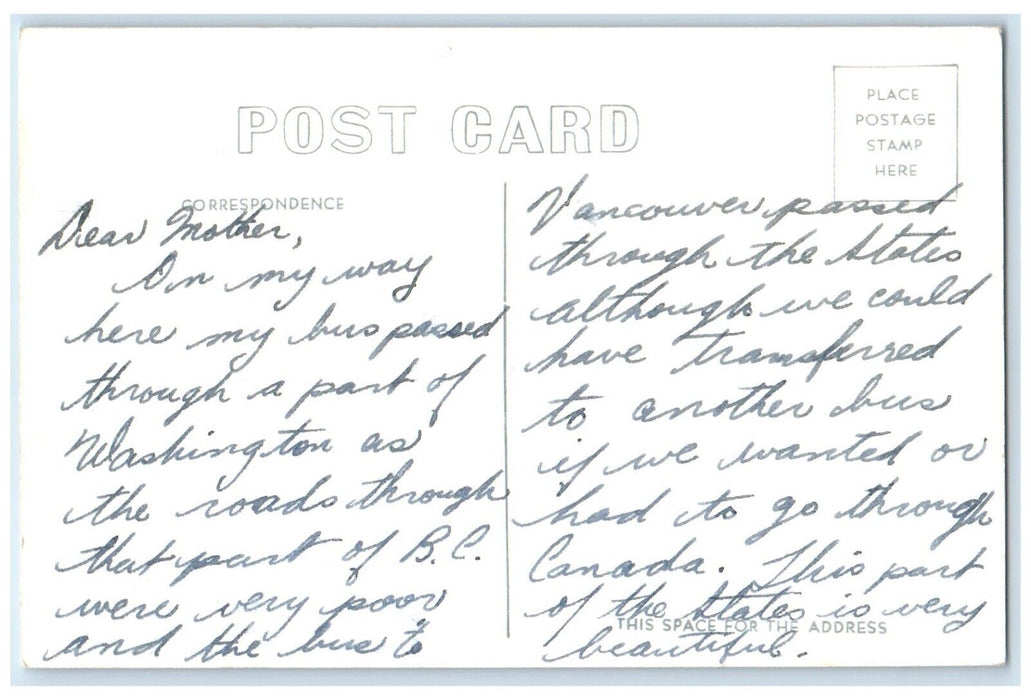 POST CARD
PLACE
POSTAGE
STAMP
HERE
CORRESPONDENCE
Dear Mother,
On my way
here my bus passed
through a part of
Washington as
the roads through
that part of B.C.
were very poor
and the bus to
Vancouver passed
through the States
although we could
have transferred
to another bus
if we wanted or
had to go through
Canada. This part
of the States is very
beautiful.
THIS SPACE FOR THE ADDRESS